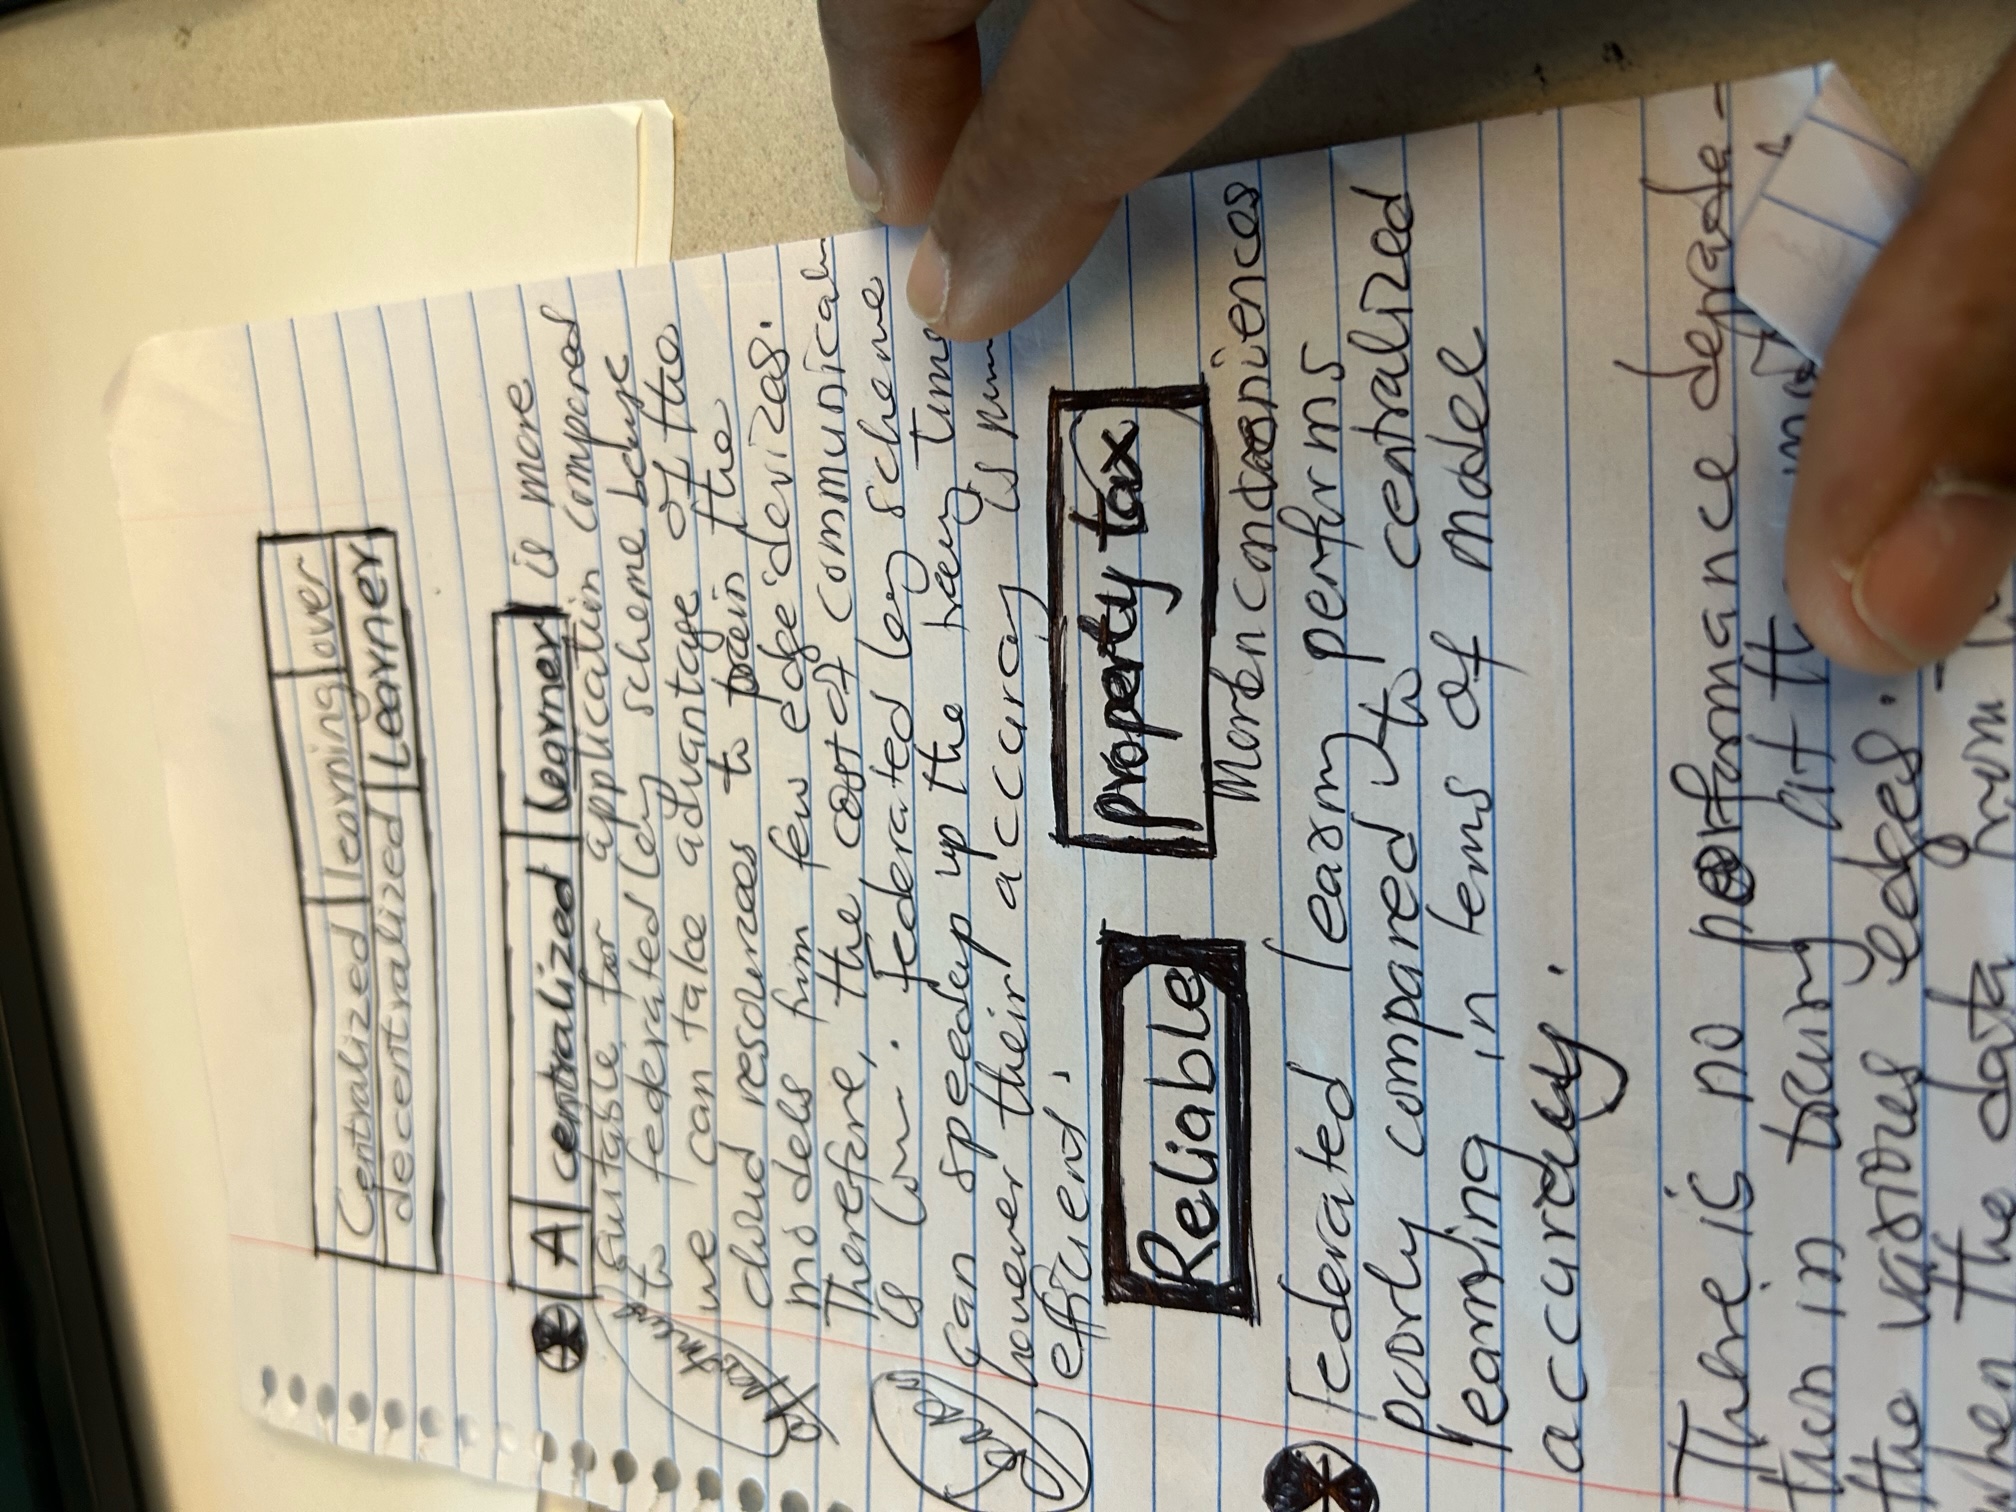 Centralized learning over
decentralized Learner
A centralized learner is more
suitable for application compared
to federated leg scheme
we can take advantage of the
cloud resources to train the
models from few edge devizes.
Therefore, the cost of communicatn
is low. Federated leg scheme
can speedup up the time
however their accuracy is
efficient.
Reliable property tax
Federated learning performs
poorly compared to centralized
learning in tems of model
accuracy.
There is no performance degrada-
tion in at
the various edges.
when the data from